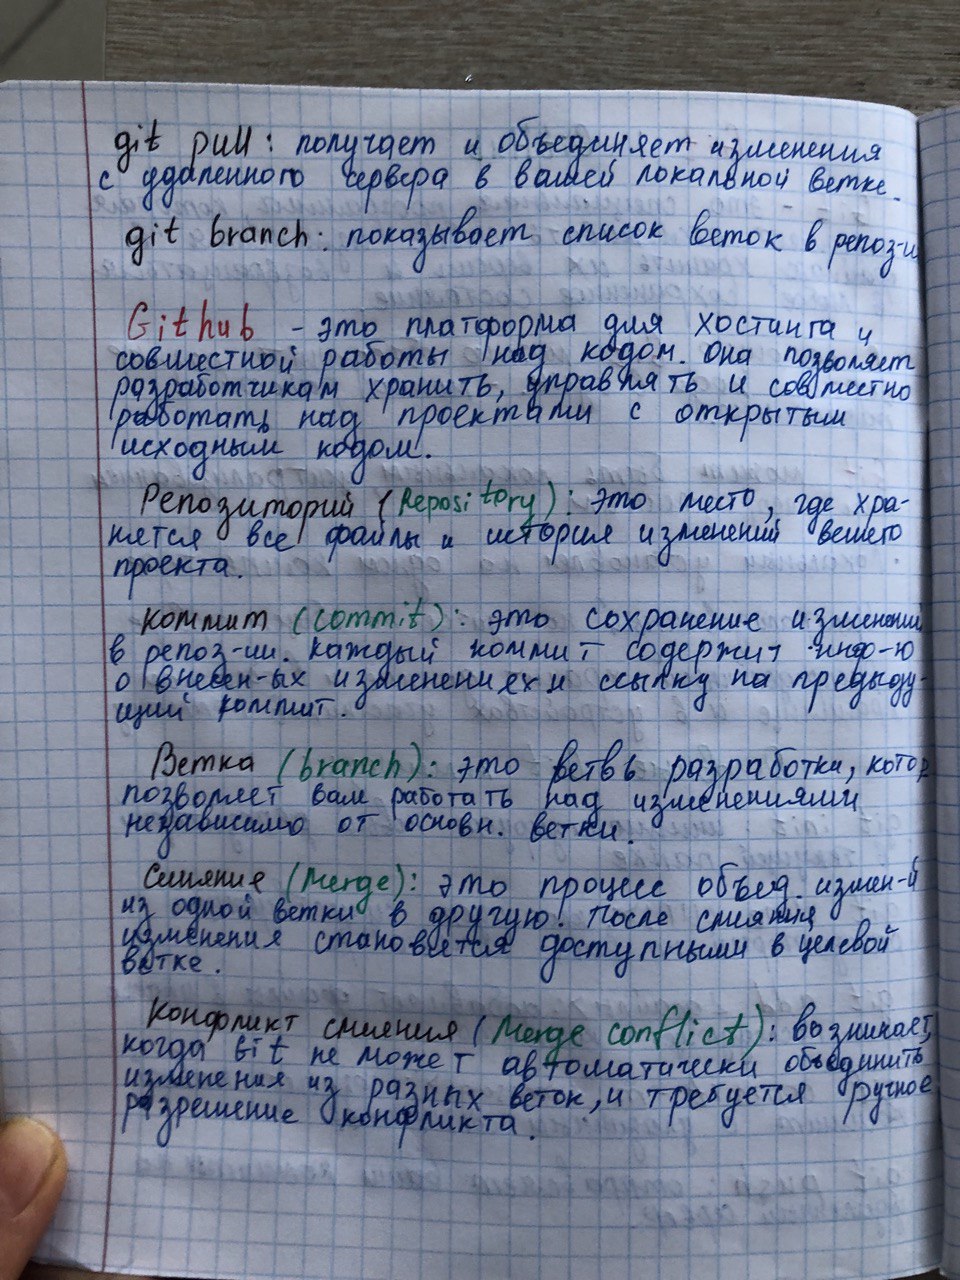 git pull: получает и объединяет изменения
с удаленного сервера в вашей локальной ветке.
git branch: показывает список веток в репоз-и
Github - это платформа для хостинга и
совместной работы над кодом. Она позволяет
разработчикам хранить, управлять и совместно
работать над проектами с открытым
исходным кодом.
Репозиторий (Repository): это место, где хра-
нятся все файлы и история изменений вешего
проекта.
Коммит (commit): это сохранение изменений
в репоз-ии. Каждый коммит содержит инфо-ю
о внесен-ых изменениях и ссылку на предыду-
щий коммит.
Ветка (branch): это ветвь разработки, котор
позволяет вам работать над изменениями
независимо от основн. ветки.
Слияние (Merge): это процесс объед. измен-й
из одной ветки в другую. После слияния
изменения становятся доступными в целевой
ветке.
Конфликт слияния (Merge conflict): возникает,
когда Git не может автоматически объединить
изменения из разных веток, и требуется ручное
разрешение конфликта.